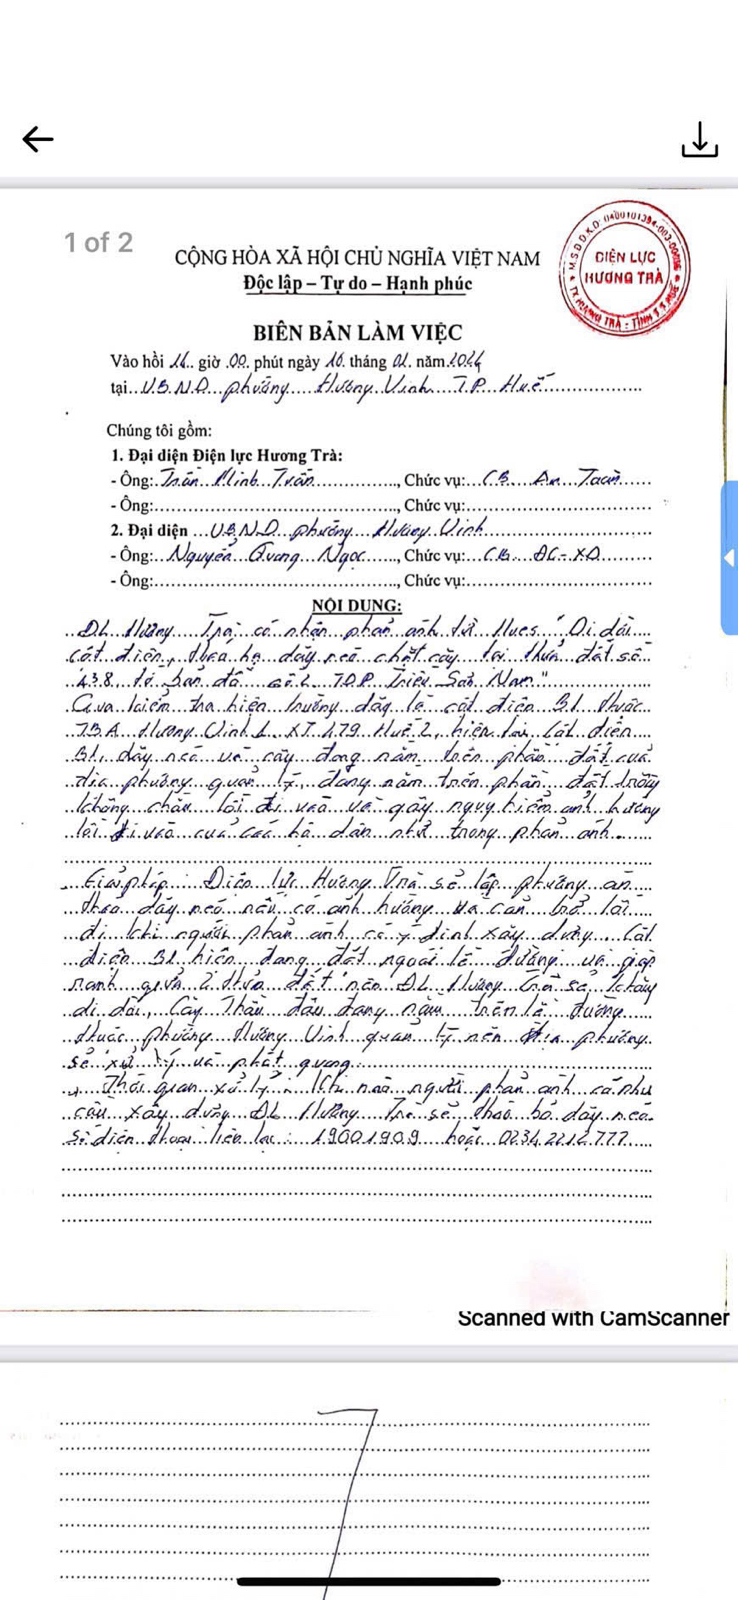 1 of 2
CỘNG HÒA XÃ HỘI CHỦ NGHĨA VIỆT NAM
Độc lập – Tự do – Hạnh phúc
M.S.D.D.K.D: 0400101394-003-00036
ĐIỆN LỰC
HƯƠNG TRÀ
TX HƯƠNG TRÀ - TỈNH T.T.HUẾ
BIÊN BẢN LÀM VIỆC
Vào hồi giờ .00. phút ngày .16. tháng năm
tại..U.B.N.D...phường....Hương..Vinh...T.P...Huế
Chúng tôi gồm:
1. Đại diện Điện lực Hương Trà:
- Ông:.Trần..Minh..Tuấn..., Chức vụ:...CB...An..Toàn
- Ông:..., Chức vụ:...
2. Đại diện ...U.B.N.D...phường...Hương..Vinh
- Ông:..Nguyễn..Quang..Ngọc..., Chức vụ:..CB...ĐC-XD...
- Ông:..., Chức vụ:...
NỘI DUNG:
ĐL Hương Trà có nhận phản ánh từ Hues "Di dời
cột điện, tháo hạ dây néo, chặt cây tại thửa đất số
438, tờ bản đồ số 2 TDP Triều Sơn Nam"
Qua kiểm tra hiện trường đây là cột điện 3.1 thuộc
TBA Hương Vinh 1 XT 479 Huế 2, hiện tại cột điện
3.1, dây néo và cây đang nằm trên phần đất của
địa phương quản lý, đang nằm trên phần đất đường
không chắn lối đi vào và gây nguy hiểm ảnh hưởng
lối đi vào của các hộ dân như trong phản ánh.
Giải pháp: Điện lực Hương Trà sẽ lập phương án
tháo dây néo nếu có ảnh hưởng và cản trở lối
đi khi người phản ánh có ý định xây dựng. Cột
điện 3.1 hiện đang đặt ngoài lề đường và giáp
ranh giữa 2 thửa đất nên ĐL Hương Trà sẽ không
di dời, Cây Thầu đâu đang nằm trên lề đường
thuộc phường Hương Vinh quản lý nên địa phương
sẽ xử lý và phát quang.
Thời gian xử lý: Khi nào người phản ánh có nhu
cầu xây dựng ĐL Hương Trà sẽ tháo bỏ dây néo.
Số điện thoại liên lạc: 19001909 hoặc 0234.2212.777
Scanned with CamScanner